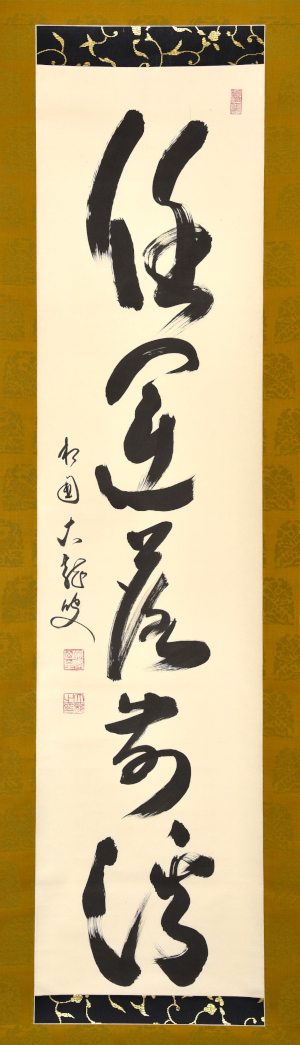 任運落前溪
相国大龍叟